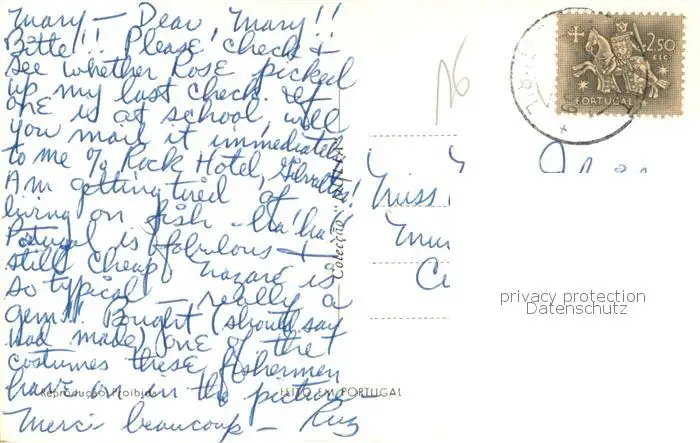 Mary — Dear Mary!!
Bitte!! Please check &
see whether Rose picked
up my last check. If
one is at school, will
you mail it immediately
to me % Rock Hotel, Gibraltar!
Am getting tired of
living on fish - ha! ha!!
Portugal is fabulous — &
still cheap! Nazaré is
so typical — really a
gem!!! Bought (should say
had made) one of the
costumes these fishermen
have on in the picture —
Merci beaucoup —
Reprodução Proibida
FEITO EM PORTUGAL
Colecção
2$50
ESC
PORTUGAL
Miss
privacy protection
Datenschutz